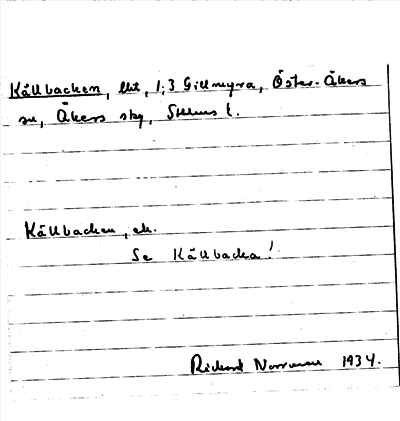 Källbacken, lht, 1:3 Gillmyra, Öster-Åkers
sn, Åkers skg, Sthlms l.
Källbacken, ek.
Se Källbacka!
Richard Norrman 1934.